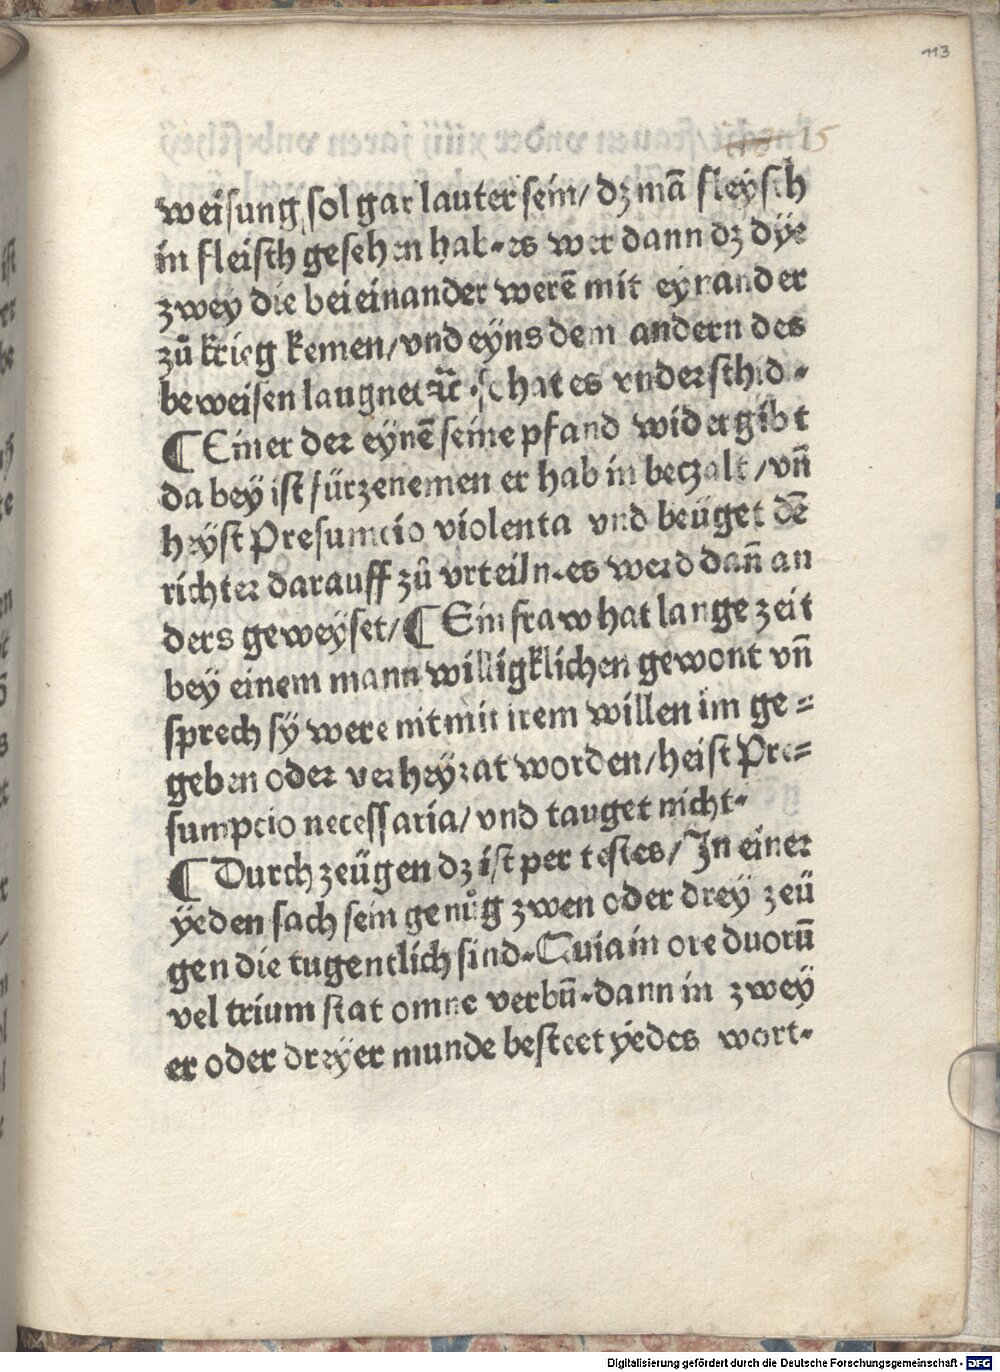 113
15
weisung sol gar lauter sein/ dz mã fleysch
in fleisch gesehen hab. es wer dann dz dÿe
zwey die bei einander werẽ mit eynander
zů krieg kemen/ vnd eÿns dem andern des
beweisen laugnet ⁊c̃. so hat es vnderschid.
¶ Einer der eÿnẽ seine pfand wider gibt
da beÿ ist fürzenemen er hab in beczalt/ vñ
heÿst Presumcio violenta vnd beüget dẽ
richter darauff zů vrteiln. es werd dañ an
ders geweÿset/ ¶ Ein fraw hat lange zeit
beÿ einem mann willigklichen gewont vñ
sprech sÿ were nit mit irem willen im ge=
geben oder verheÿrat worden/ heist Pre=
sumpcio necessaria/ vnd tauget nicht.
¶ Durch zeügen dz ist per testes/ In einer
ÿeden sach sein genůg zwen oder dreÿ zeü
gen die tugentlich sind. Quia in ore duorũ
vel trium stat omne verbũ. dann in zweÿ
er oder dreÿer munde besteet ÿedes wort.
Digitalisierung gefördert durch die Deutsche Forschungsgemeinschaft - DFG